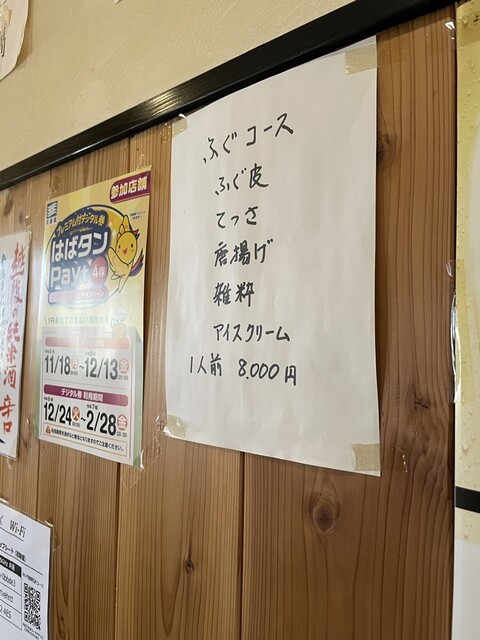 ふぐコース
ふぐ皮
てっさ
唐揚げ
雑粋
アイスクリーム
1人前 8.000円
参加店舗
プレミアム付デジタル券
はばタン
Pay+
4弾
11/18 月 ~ 12/13 金
デジタル券 利用期間
12/24 火 ~ 2/28 金
越後の純米酒 辛口
Wi-Fi